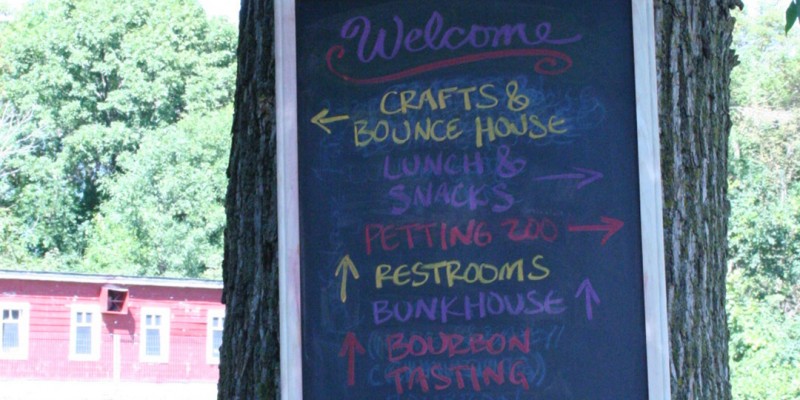 Welcome
CRAFTS &
BOUNCE HOUSE
LUNCH &
SNACKS
PETTING ZOO
RESTROOMS
BUNKHOUSE
BOURBON
TASTING